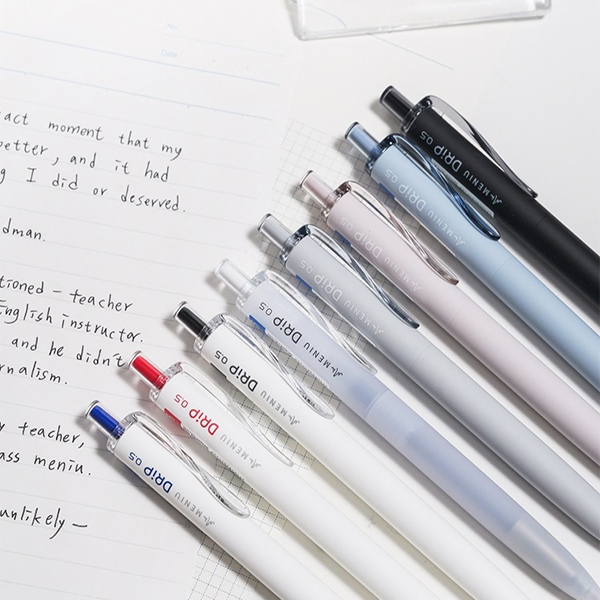 No:
Date
act moment that my
better, and it had
g I did or deserved.
dman.
tioned - teacher
English instructor.
and he didn't
rnalism.
y teacher,
ass meniu.
unlikely —
MENIU DRiP 0.5
MENIU DRiP 0.5
MENIU DRiP 0.5
MENIU DRiP 0.5
MENIU DRiP 0.5
MENIU DRiP 0.5
MENIU DRiP 0.5
MENIU DRiP 0.5